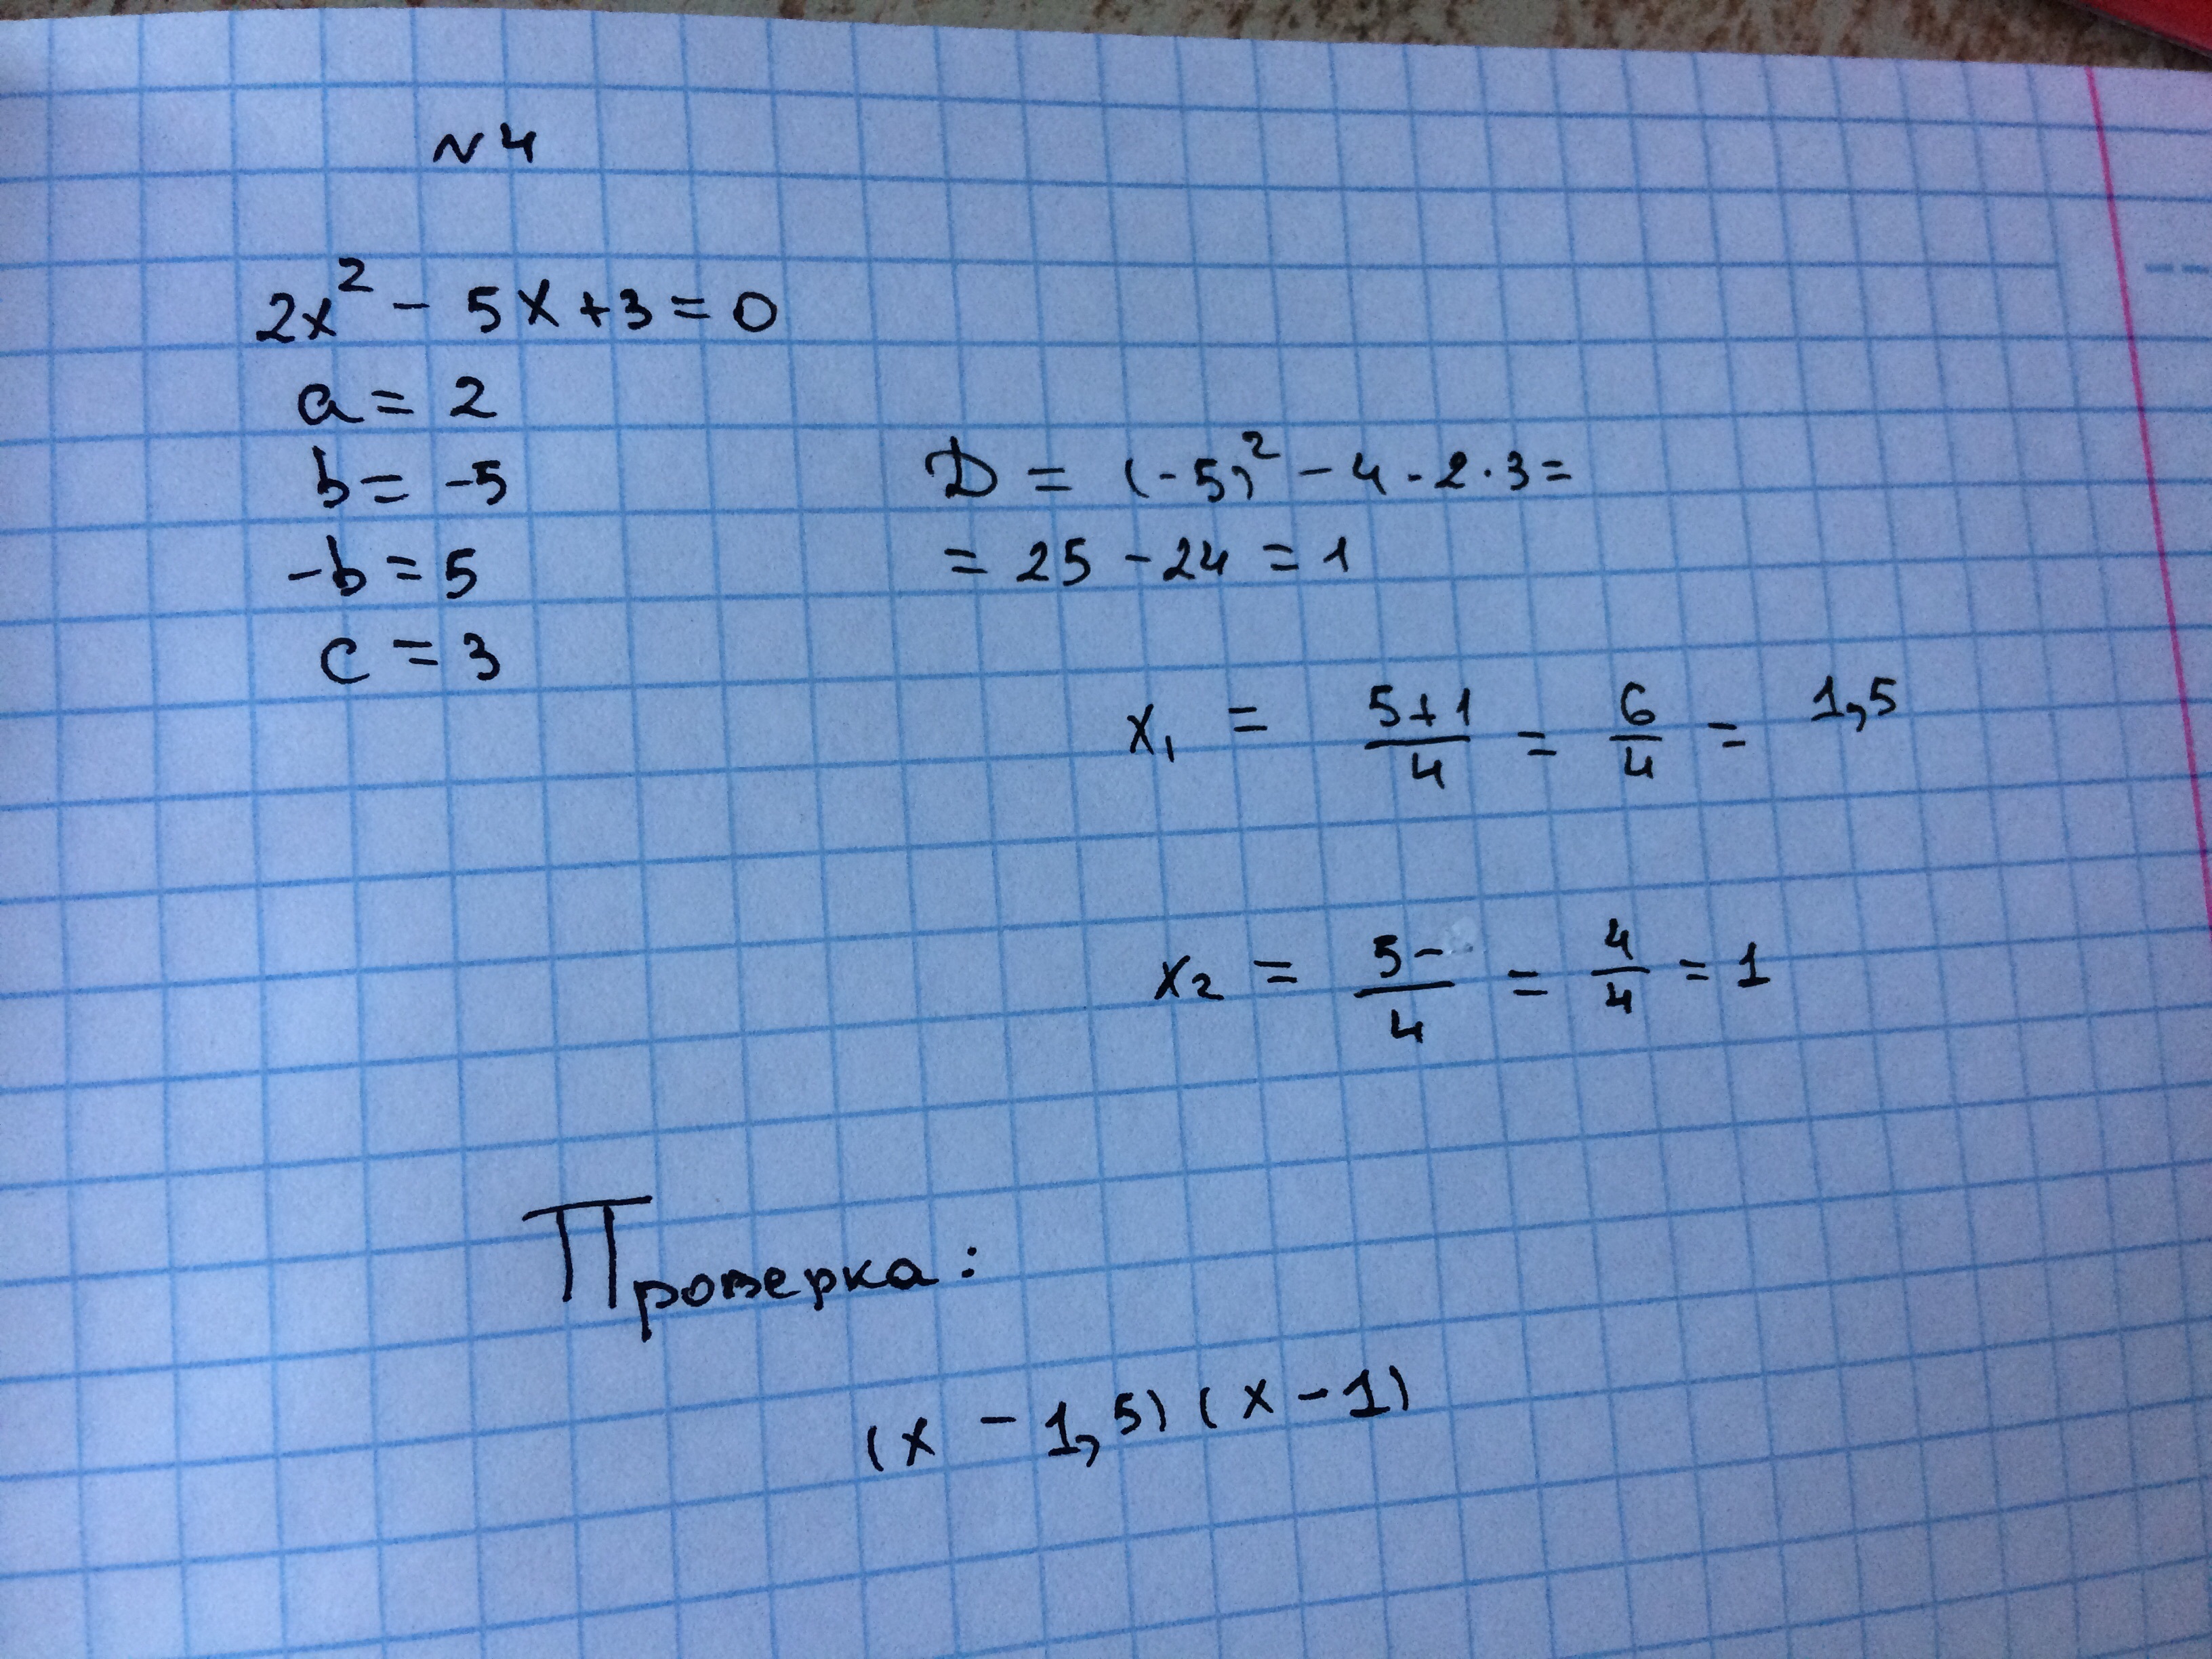 N4
2x² - 5x + 3 = 0
a = 2
b = -5
-b = 5
c = 3
D = (-5)² - 4 · 2 · 3 =
= 25 - 24 = 1
x₁ = (5+1)/4 = 6/4 = 1,5
x₂ = (5-)/4 = 4/4 = 1
Проверка:
(x - 1,5)(x - 1)